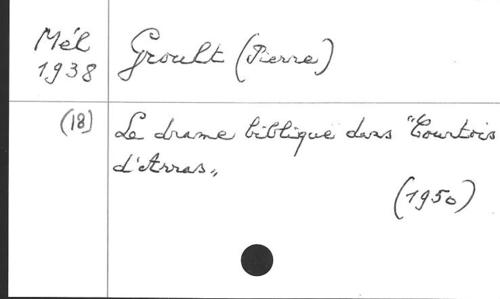 Mél
1938
Groult (Pierre)
(18)
Le drame biblique dans "Courtois
d'Arras"
(1950)